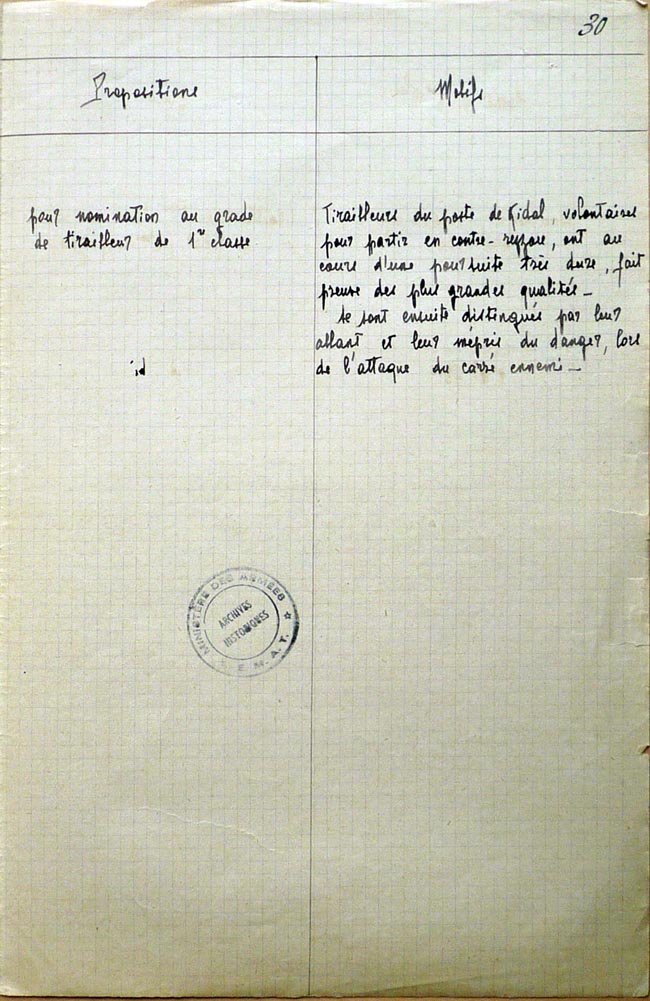 30
Propositions
Motifs
pour nomination au grade
de tirailleur de 1re classe
id
Tirailleurs du poste de Kidal, volontaires
pour partir en contre-rezzou, ont au
cours d'une poursuite très dure, fait
preuve des plus grandes qualités_
Se sont ensuite distingués par leur
allant et leur mépris du danger, lors
de l'attaque du carré ennemi_
MINISTÈRE DES ARMÉES
E. M. A. T.
ARCHIVES
HISTORIQUES